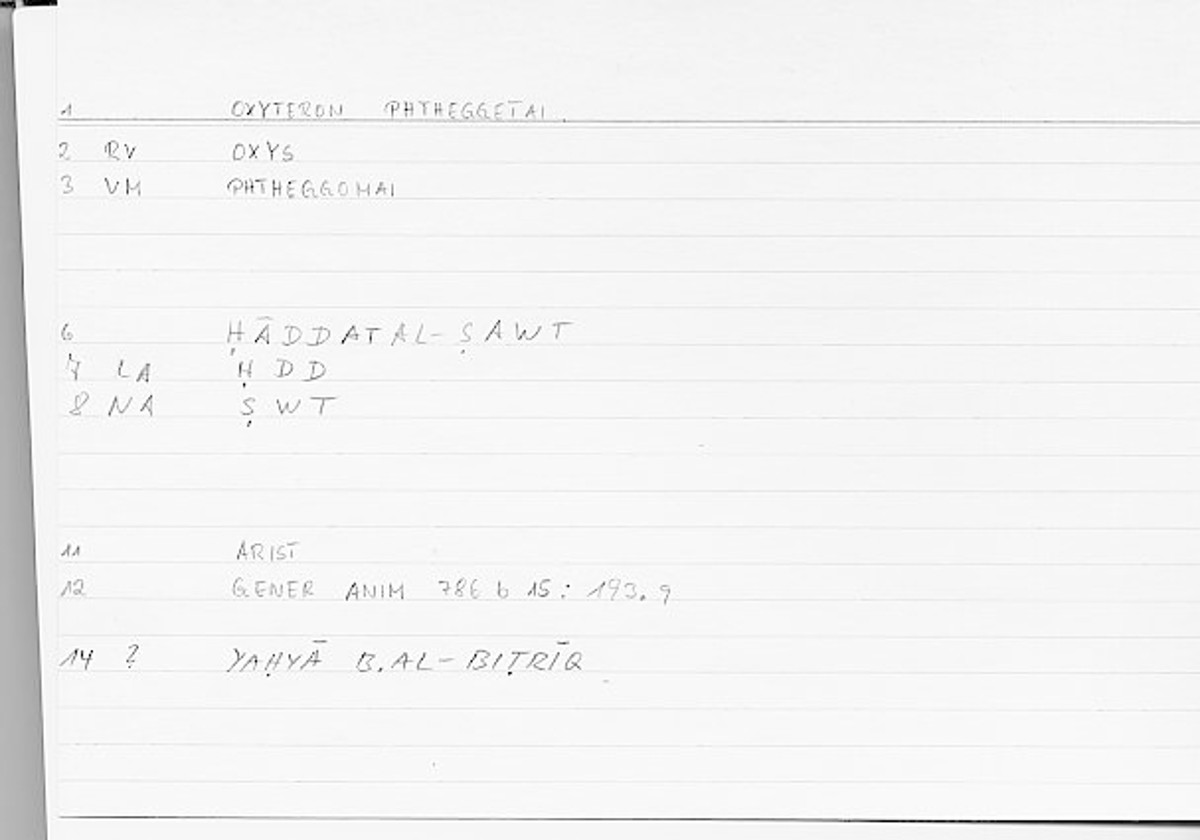 1 OXYTERON PHTHEGGETAI.
2 RV OXYS
3 VM PHTHEGGOMAI
6 ḤĀDDATAL-ṢAWT
7 LA ḤDD
8 NA ṢWT
11 ARIST
12 GENER ANIM 786 b 15: 193.9
14 ? YAḤYĀ B.AL-BIṬRĪQ